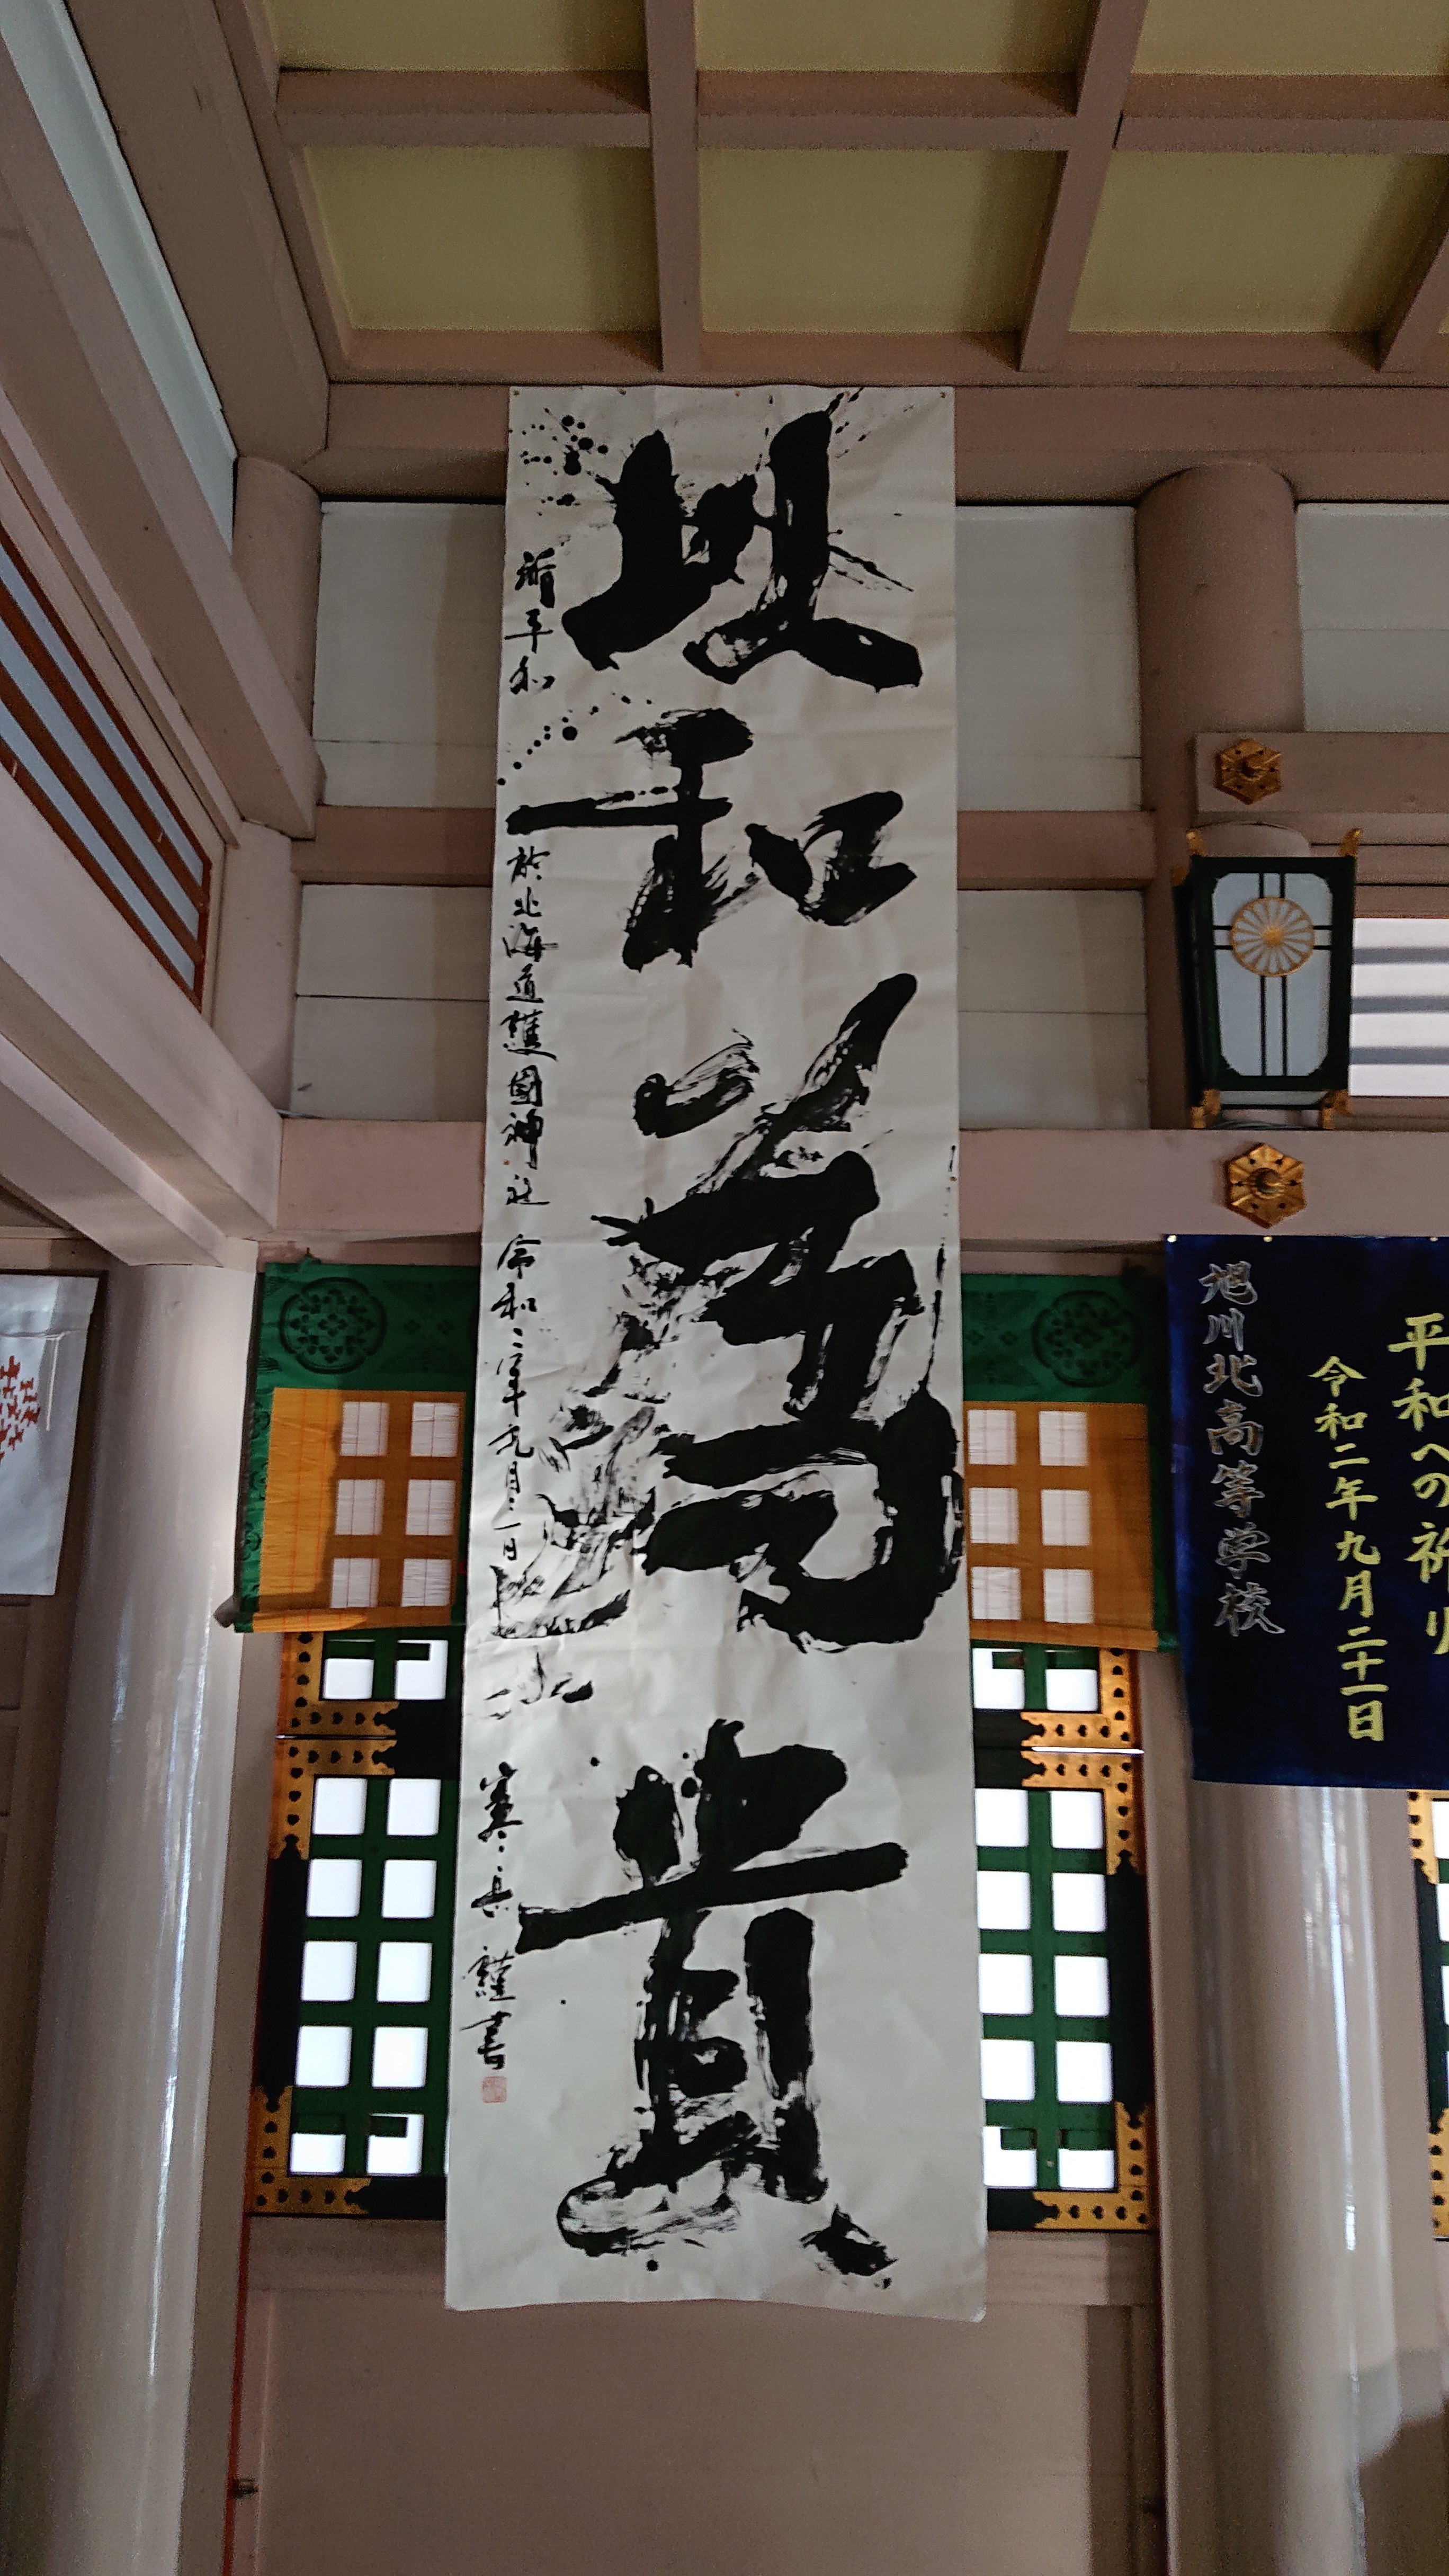 平和への祈り
令和二年九月二十一日
旭川北高等学校
以和為貴
祈平和
於北海道護國神社
令和二年九月二一日
謹書